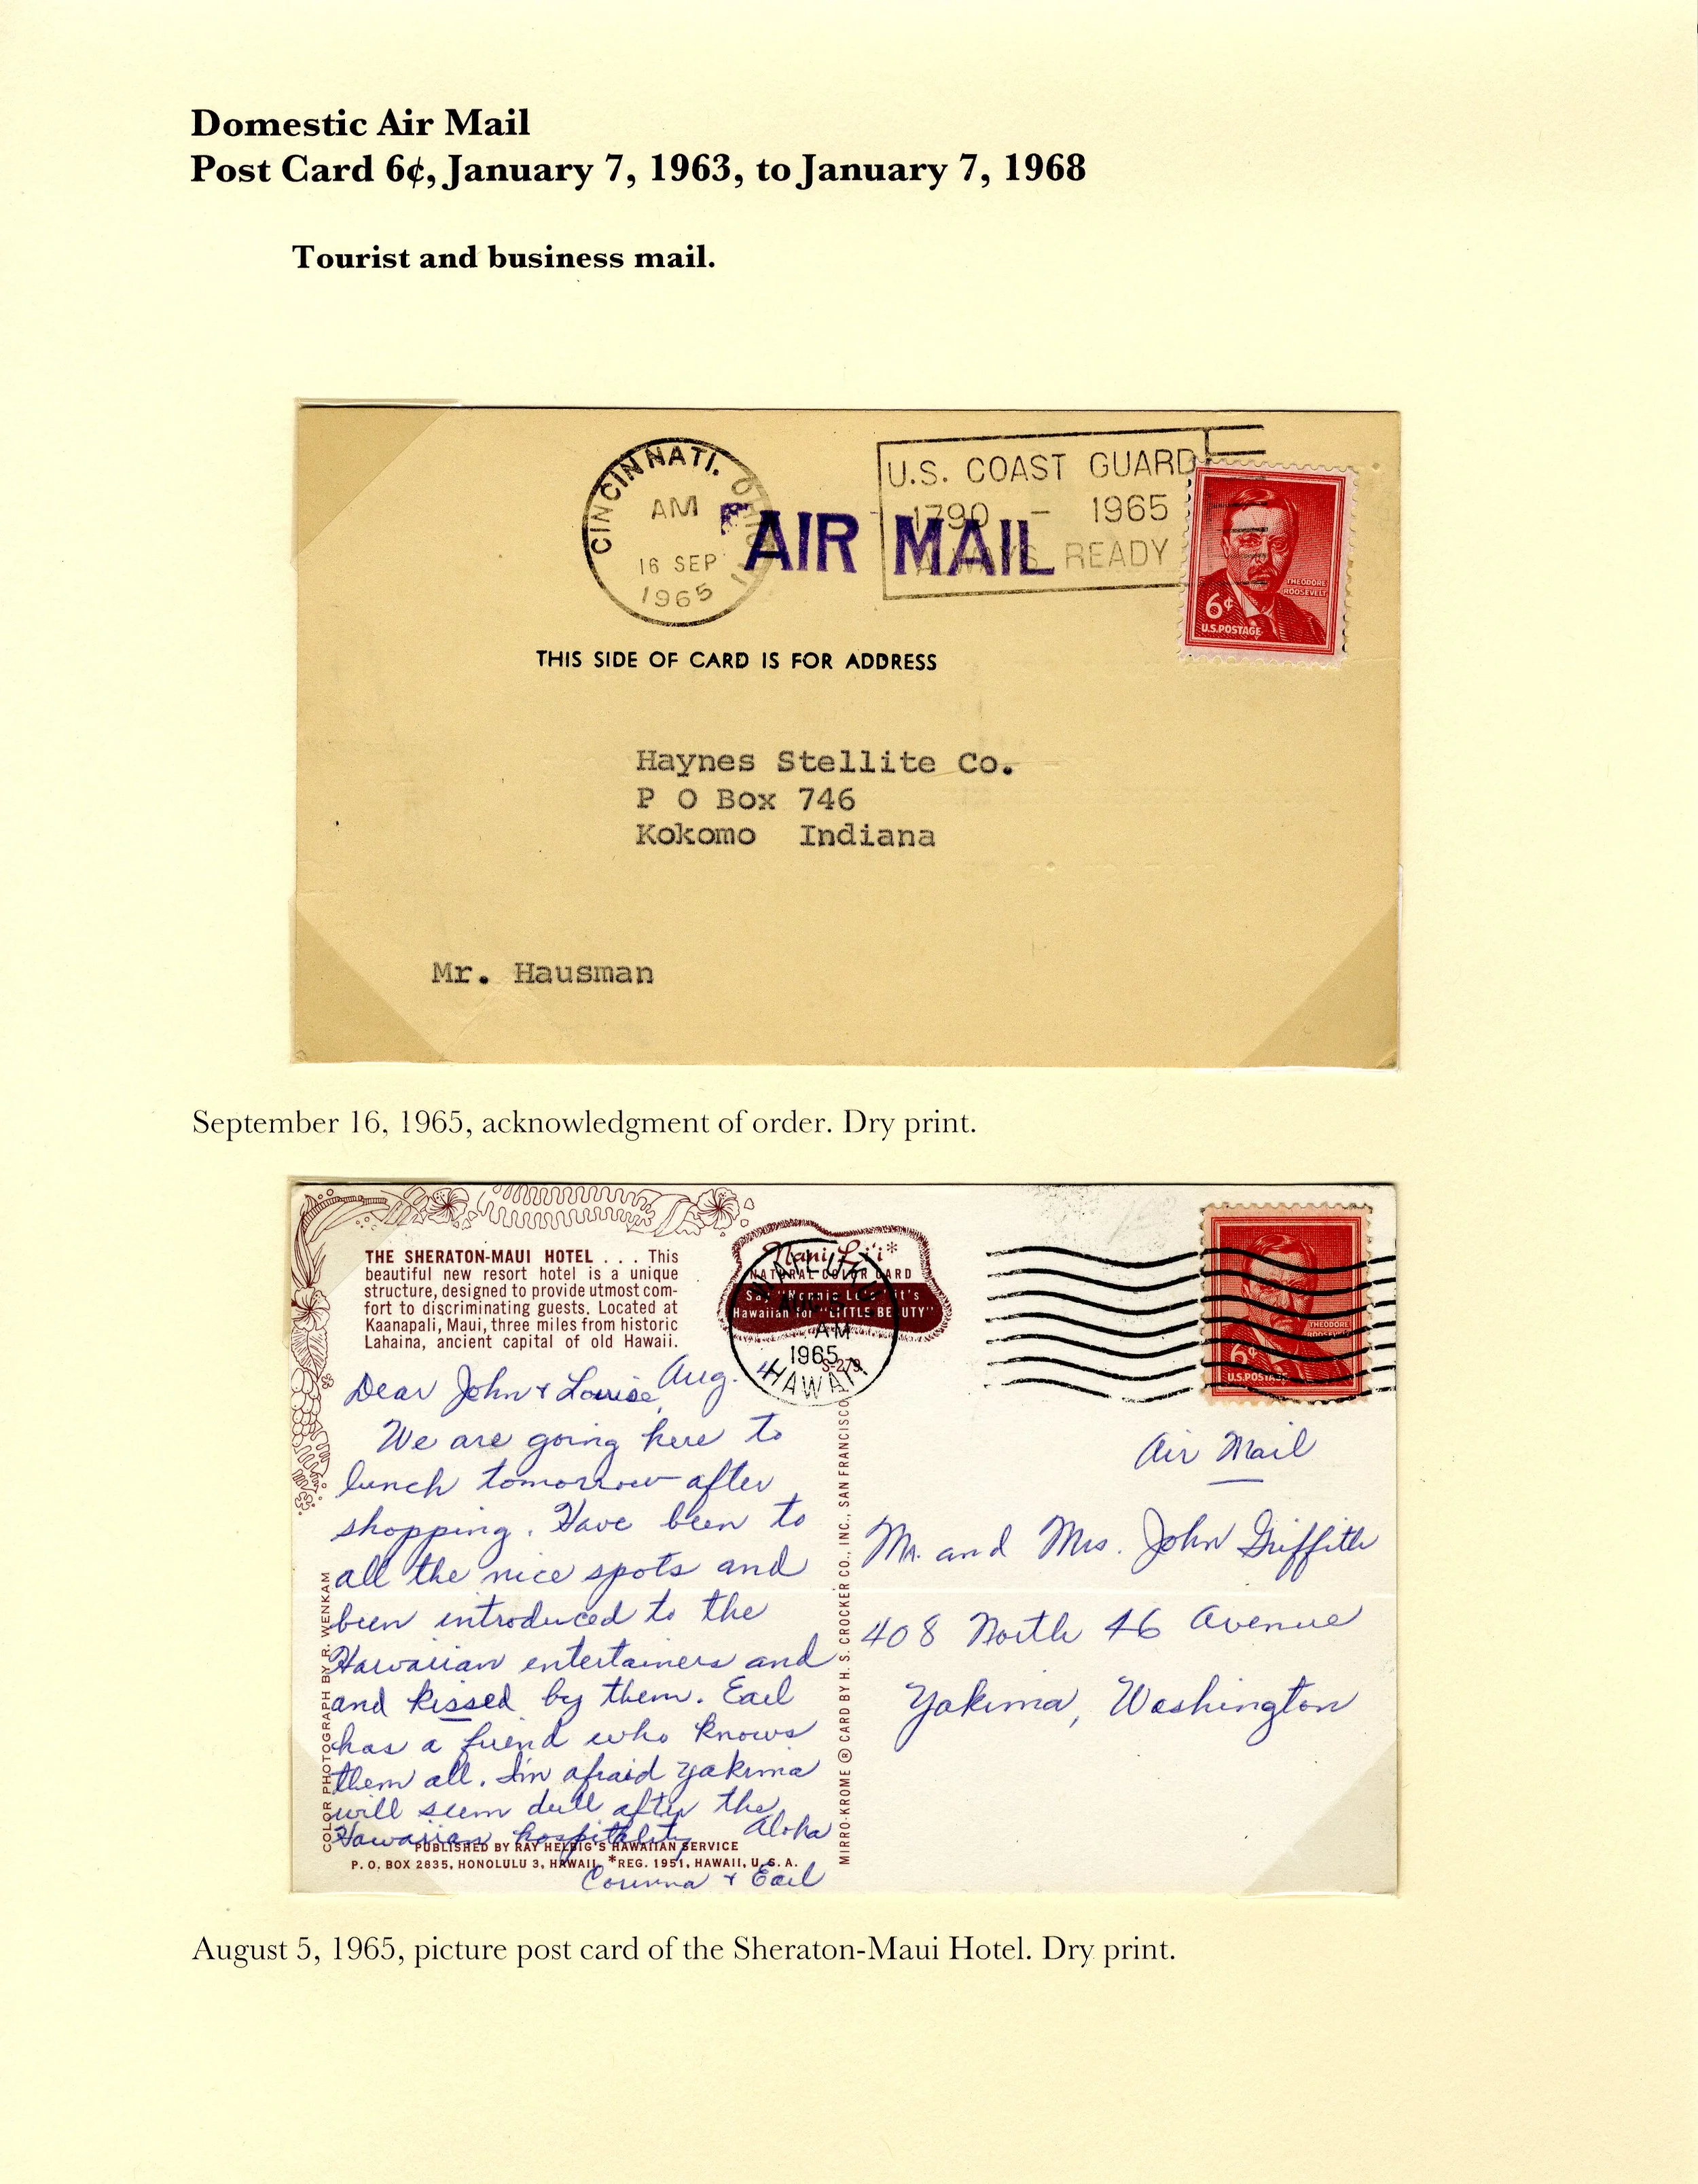 Domestic Air Mail
Post Card 6¢, January 7, 1963, to January 7, 1968
Tourist and business mail.
CINCINNATI, OHIO
AM
16 SEP
1965
U.S. COAST GUARD
1790 - 1965
ALWAYS READY
AIR MAIL
THEODORE
ROOSEVELT
6¢
U.S.POSTAGE
THIS SIDE OF CARD IS FOR ADDRESS
Haynes Stellite Co.
P O Box 746
Kokomo Indiana
Mr. Hausman
September 16, 1965, acknowledgment of order. Dry print.
THE SHERATON-MAUI HOTEL . . . This
beautiful new resort hotel is a unique
structure, designed to provide utmost com-
fort to discriminating guests. Located at
Kaanapali, Maui, three miles from historic
Lahaina, ancient capital of old Hawaii.
Nani Li'i*
NATURAL COLOR CARD
Say "Nannie Lee" it's
Hawaiian for "LITTLE BEAUTY"
WAILUKU
AUG
AM
1965
HAWAII
S-279
THEODORE
ROOSEVELT
6¢
U.S.POSTAGE
Dear John & Louise, Aug. 4
We are going here to
lunch tomorrow after
shopping. Have been to
all the nice spots and
been introduced to the
Hawaiian entertainers and
and kissed by them. Earl
has a friend who knows
them all. I'm afraid Yakima
will seem dull after the
Hawaiian hospitality Aloha
Corinna & Earl
Air Mail
Mr. and Mrs. John Griffith
408 North 46 Avenue
Yakima, Washington
COLOR PHOTOGRAPH BY R. WENKAM
MIRRO-KROME ® CARD BY H. S. CROCKER CO., INC., SAN FRANCISCO
PUBLISHED BY RAY HELBIG'S HAWAIIAN SERVICE
P. O. BOX 2835, HONOLULU 3, HAWAII. *REG. 1951, HAWAII, U. S. A.
August 5, 1965, picture post card of the Sheraton-Maui Hotel. Dry print.